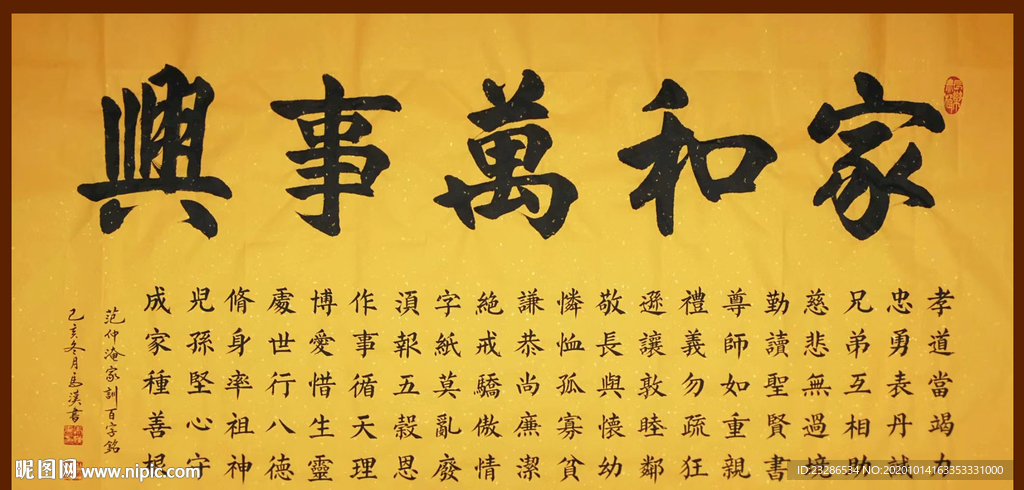 家和萬事興
孝道當竭力
忠勇表丹誠
兄弟互相助
慈悲無過境
勤讀聖賢書
尊師如重親
禮義勿疏狂
遜讓敦睦鄰
敬長與懷幼
憐恤孤寡貧
謙恭尚廉潔
絶戒驕傲情
字紙莫亂廢
湏報五穀恩
作事循天理
博愛惜生靈
處世行八德
脩身率祖神
兒孫堅心守
成家種善根
范仲淹家訓百字銘
己亥冬月馬漢書
昵图网 www.nipic.com
ID:23286534 NO:20201014163353331000